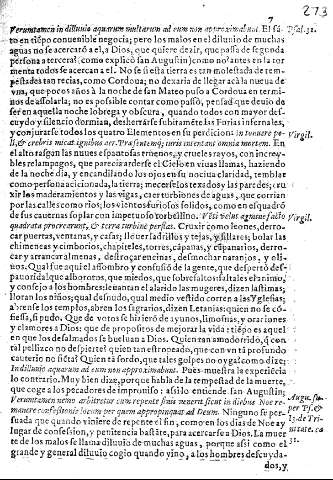 273
7
Veruntamen in diluuio aquarum multarum ad eum non approximabunt. El sa- Psal. 31.
to en tiẽpo conuenible negocia; pero los malos en el diluuio de muchas
aguas no se acercarõ a el, a Dios, que quiere dezir, que passa de segunda
persona a tercera (como explicó san Augustin) como no? antes en la tor
menta todos se acercan a el. No se si esta tierra es tan molestada de tem-
pestades tan recias, como Cordoua; no dexaria de llegar acà la nueua de
vna, que pocos años à la noche de san Mateo puso a Cordoua en termi-
nos de assolarla; no es possible contar como passó, pensad que deuio de
ser en aquella noche lobrega y obscura, quando todos con mayor des-
cuydo y silencio dormian, deshazerse subitamẽte las Furias infernales,
y conjurarse todos los quatro Elementos en su perdicion: in tonuere po- Virgil.
li, & crebris micat ignibus æther. Præsentemq; viris intentant omnia mortem. En
el alto rasgan las nuues espantosas truenos, y crueles rayos, con increy-
bles relampagos, que parecia arderse el Cielo en viuas llamas, haziendo
de la noche dia, y encandilando los ojos en su nociua claridad, temblar
como persona aficionada, la tierra; mecerse los texados y las paredes; cru
xir los maderamientos y las vigas, caer turbiones de aguas, que corrian
por las calles como rios; los vientos furiosos salidos, como en esquadrõ
de sus cauernas soplar con impetuoso torbellino. Virgil.
quadrata procreauerunt, & terra turbine perflat. Cruxir como leones, derro-
car puertas, ventanas, y casas; llouer ladrillos y tejas, y pillares; bolar las
chimeneas y cimborios, chapiteles, torres, cãpanas, y espanarios, derro-
car y arrancar almenas, destroçar encinas, desmochar naranjos, y oli-
uos. Qual fue aqui el assombro y confusiõ de la gente, que desperto des-
pauorida? que alborotos, que miedos, que sobresaltos! faltales el animo,
y consejo a los hombres: leuantan el alarido las mugeres, dizen lastimas;
lloran los niños; qual desnudo, qual medio vestido corren a las Yglesias;
abrense los templos, abren los sagrarios, dizen Letanias: quien no se cõ-
fiessa, si pudo. Que de votos se hizierõ de ayunos, limosnas, y oraciones
y clamores a Dios: que de propositos de mejorar la vida: tiẽpo es aquel
en que los desalmados se bueluan a Dios. Quien tan amodorrido, q con
tal pellizco no despierte? quien tan estropeado, que con vn tã profundo
cauterio no sieta? Quien tã sordo, que tales golpes no oyga? como dize:
In diluuio aquarum ad eum non approximabunt. Pues muestra la experiẽcia
lo contrario. Muy bien dize, porque habla de la tempestad de la muerte,
que coge a los pecadores de improuiso: assi lo entiende san Augustin, Augu. su-
Veruntamen nemo arbitretur cum repente finis venerit sicut in diebus Noe re- per Ps. &
manere confessionis locum per quem appropinquet ad Deum. Ninguno se per- 13. de Tri-
suada que quando viniere de repente el fin, como en los dias de Noe ay nitate. ca
lugar de confession, y penitencia bastãte, para acercarse a Dios. La mue 31.
te de los malos se llama diluuio de muchas aguas, porque assi como el
grande y general diluuio cogio quando vino, a los hombres descuyda-
dos, y